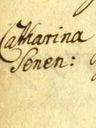 Catharina
Senen: